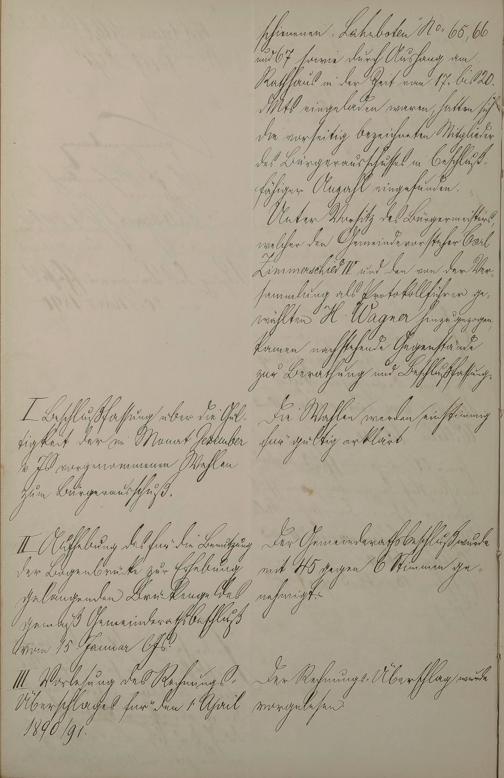 schienenen "Lahnboten" No. 65, 66
und 67 sowie durch Aushang am
Rathhaus in der Zeit vom 17. bis 20.
d. Mts eingeladen waren, hatten sich
die vorseitig bezeichneten Mitglieder
des Bürgerausschusses in beschluß-
fähiger Anzahl eingefunden.
Unter Vorsitz des Bürgermeisters
welcher den Gemeindevorsteher Carl
Zimmerschied IV und den von der Ver-
sammlung als Protokollführer ge-
wählten H. Wagner hinzugezogen
kamen nachstehende Gegenstände
zur Berathung und Beschlußfassung.
I. Beschlußfassung über die Gül-
tigkeit der im Monat Dezember
v. Js vorgenommenen Wahlen
zum Bürgerausschuß.
Die Wahlen werden einstimmig
für gültig erklärt.
II Aufhebung des für die Benutzung
der Bogenbrücke zur Erhebung
gelangenden Brückengeldes
gemäß Gemeinderathsbeschluß
vom 15 Januar lfs.
Der Gemeinderathsbeschluß wurde
mit 45 gegen 6 Stimmen ge-
nehmigt.
III Vorlesung des Rechnungs-
Überschlages für den 1 April
1890/91.
Der Rechnungs-Überschlag wurde
vorgelesen